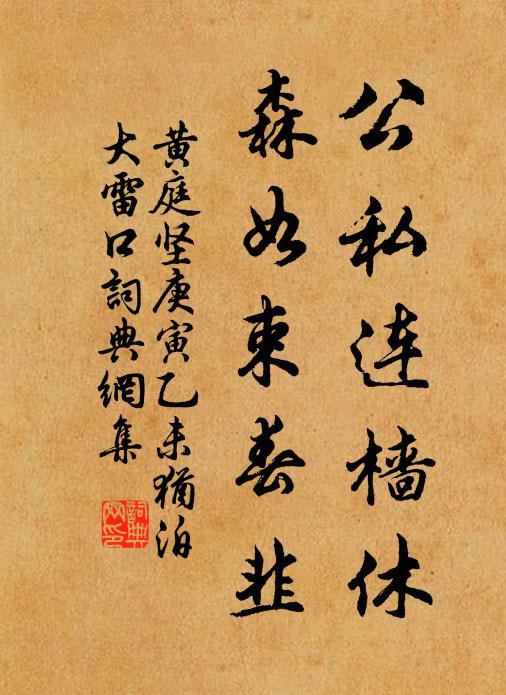 公私连樯休
森如束春韭
黄庭坚庚寅乙未犹泊
大雷口词典網集
詞典网印